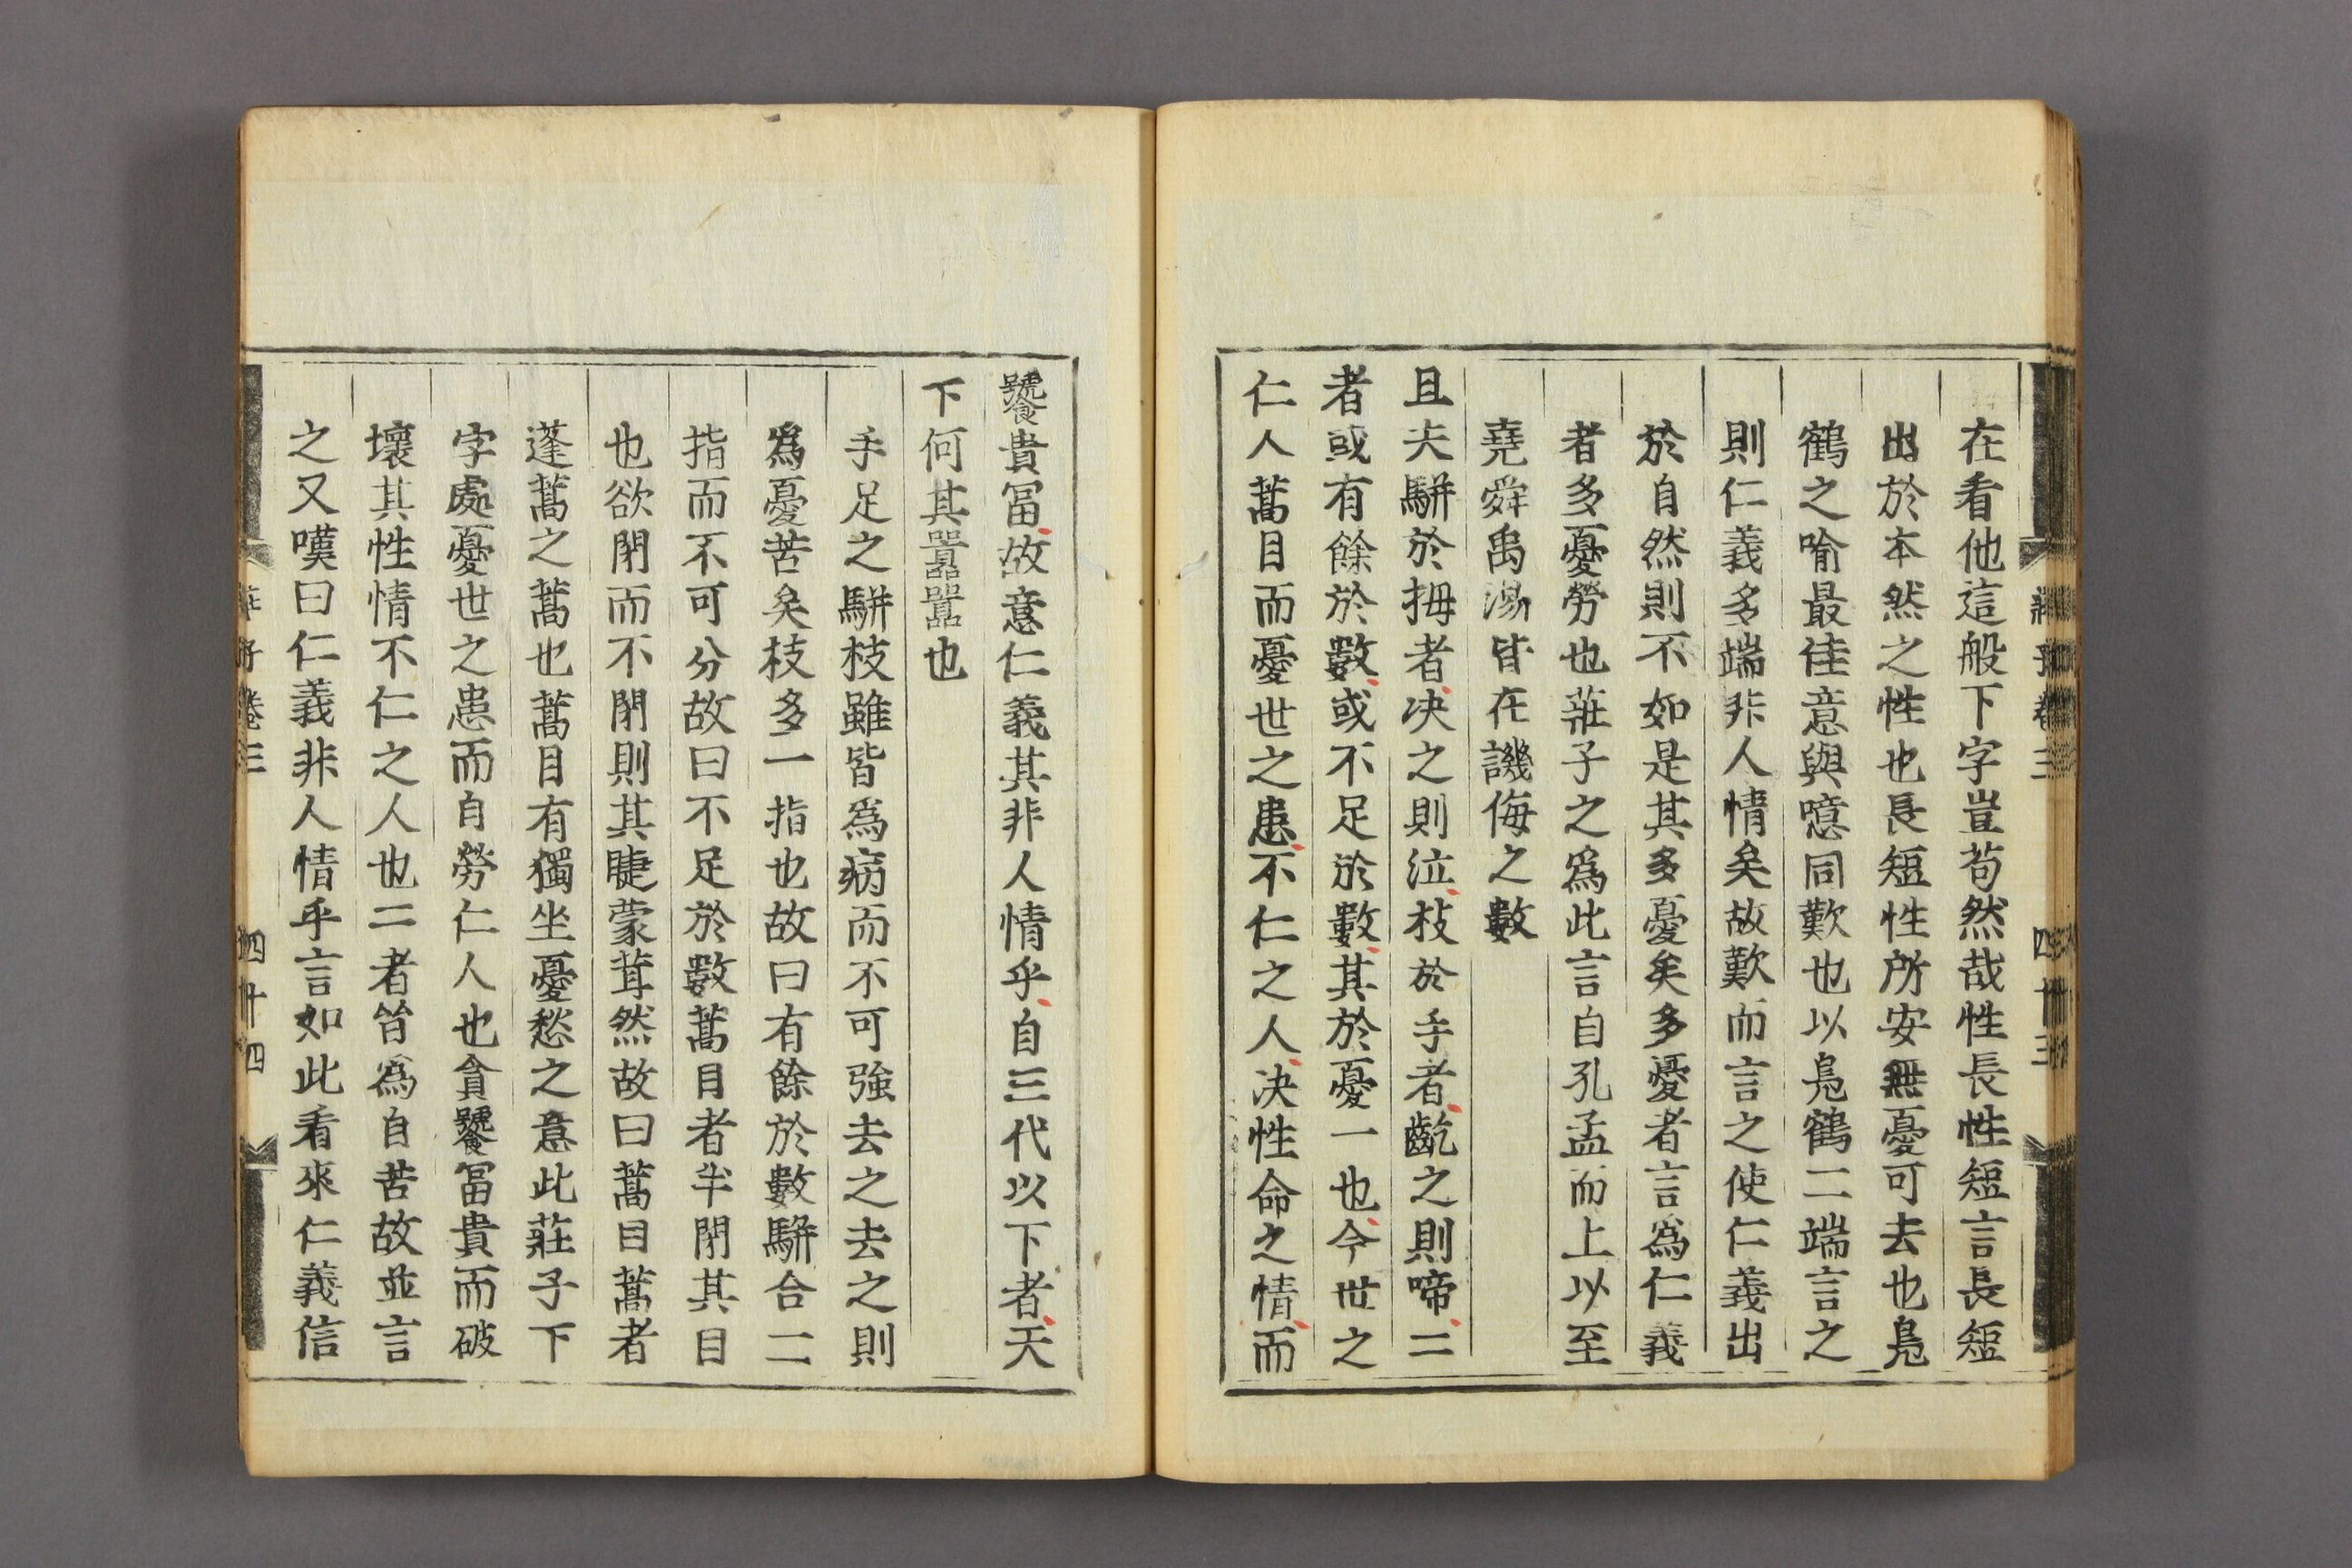 在看他這般下字豈苟然哉性長性短言長短
出於本然之性也長短性所安無憂可去也鳧
鶴之喻最佳意與噫同歎也以鳧鶴二端言之
則仁義多端非人情矣故歎而言之使仁義出
於自然則不如是其多憂矣多憂者言爲仁義
者多憂勞也莊子之爲此言自孔孟而上以至
堯舜禹湯皆在譏侮之數
且夫駢於拇者决之則泣枝於手者齕之則啼二
者或有餘於數或不足於數其於憂一也今世之
仁人蒿目而憂世之患不仁之人决性命之情而
饕貴冨故意仁義其非人情乎自三代以下者天
下何其囂囂也
手足之駢枝雖皆爲病而不可強去之去之則
爲憂苦矣枝多一指也故曰有餘於數駢合二
指而不可分故曰不足於數蒿目者半閉其目
也欲閉而不閉則其睫蒙茸然故曰蒿目蒿者
蓬蒿之蒿也蒿目有獨坐憂愁之意此莊子下
字處憂世之患而自勞仁人也貪饕冨貴而破
壞其性情不仁之人也二者皆爲自苦故並言
之又嘆曰仁義非人情乎言如此看來仁義信
莊子卷三 四十四